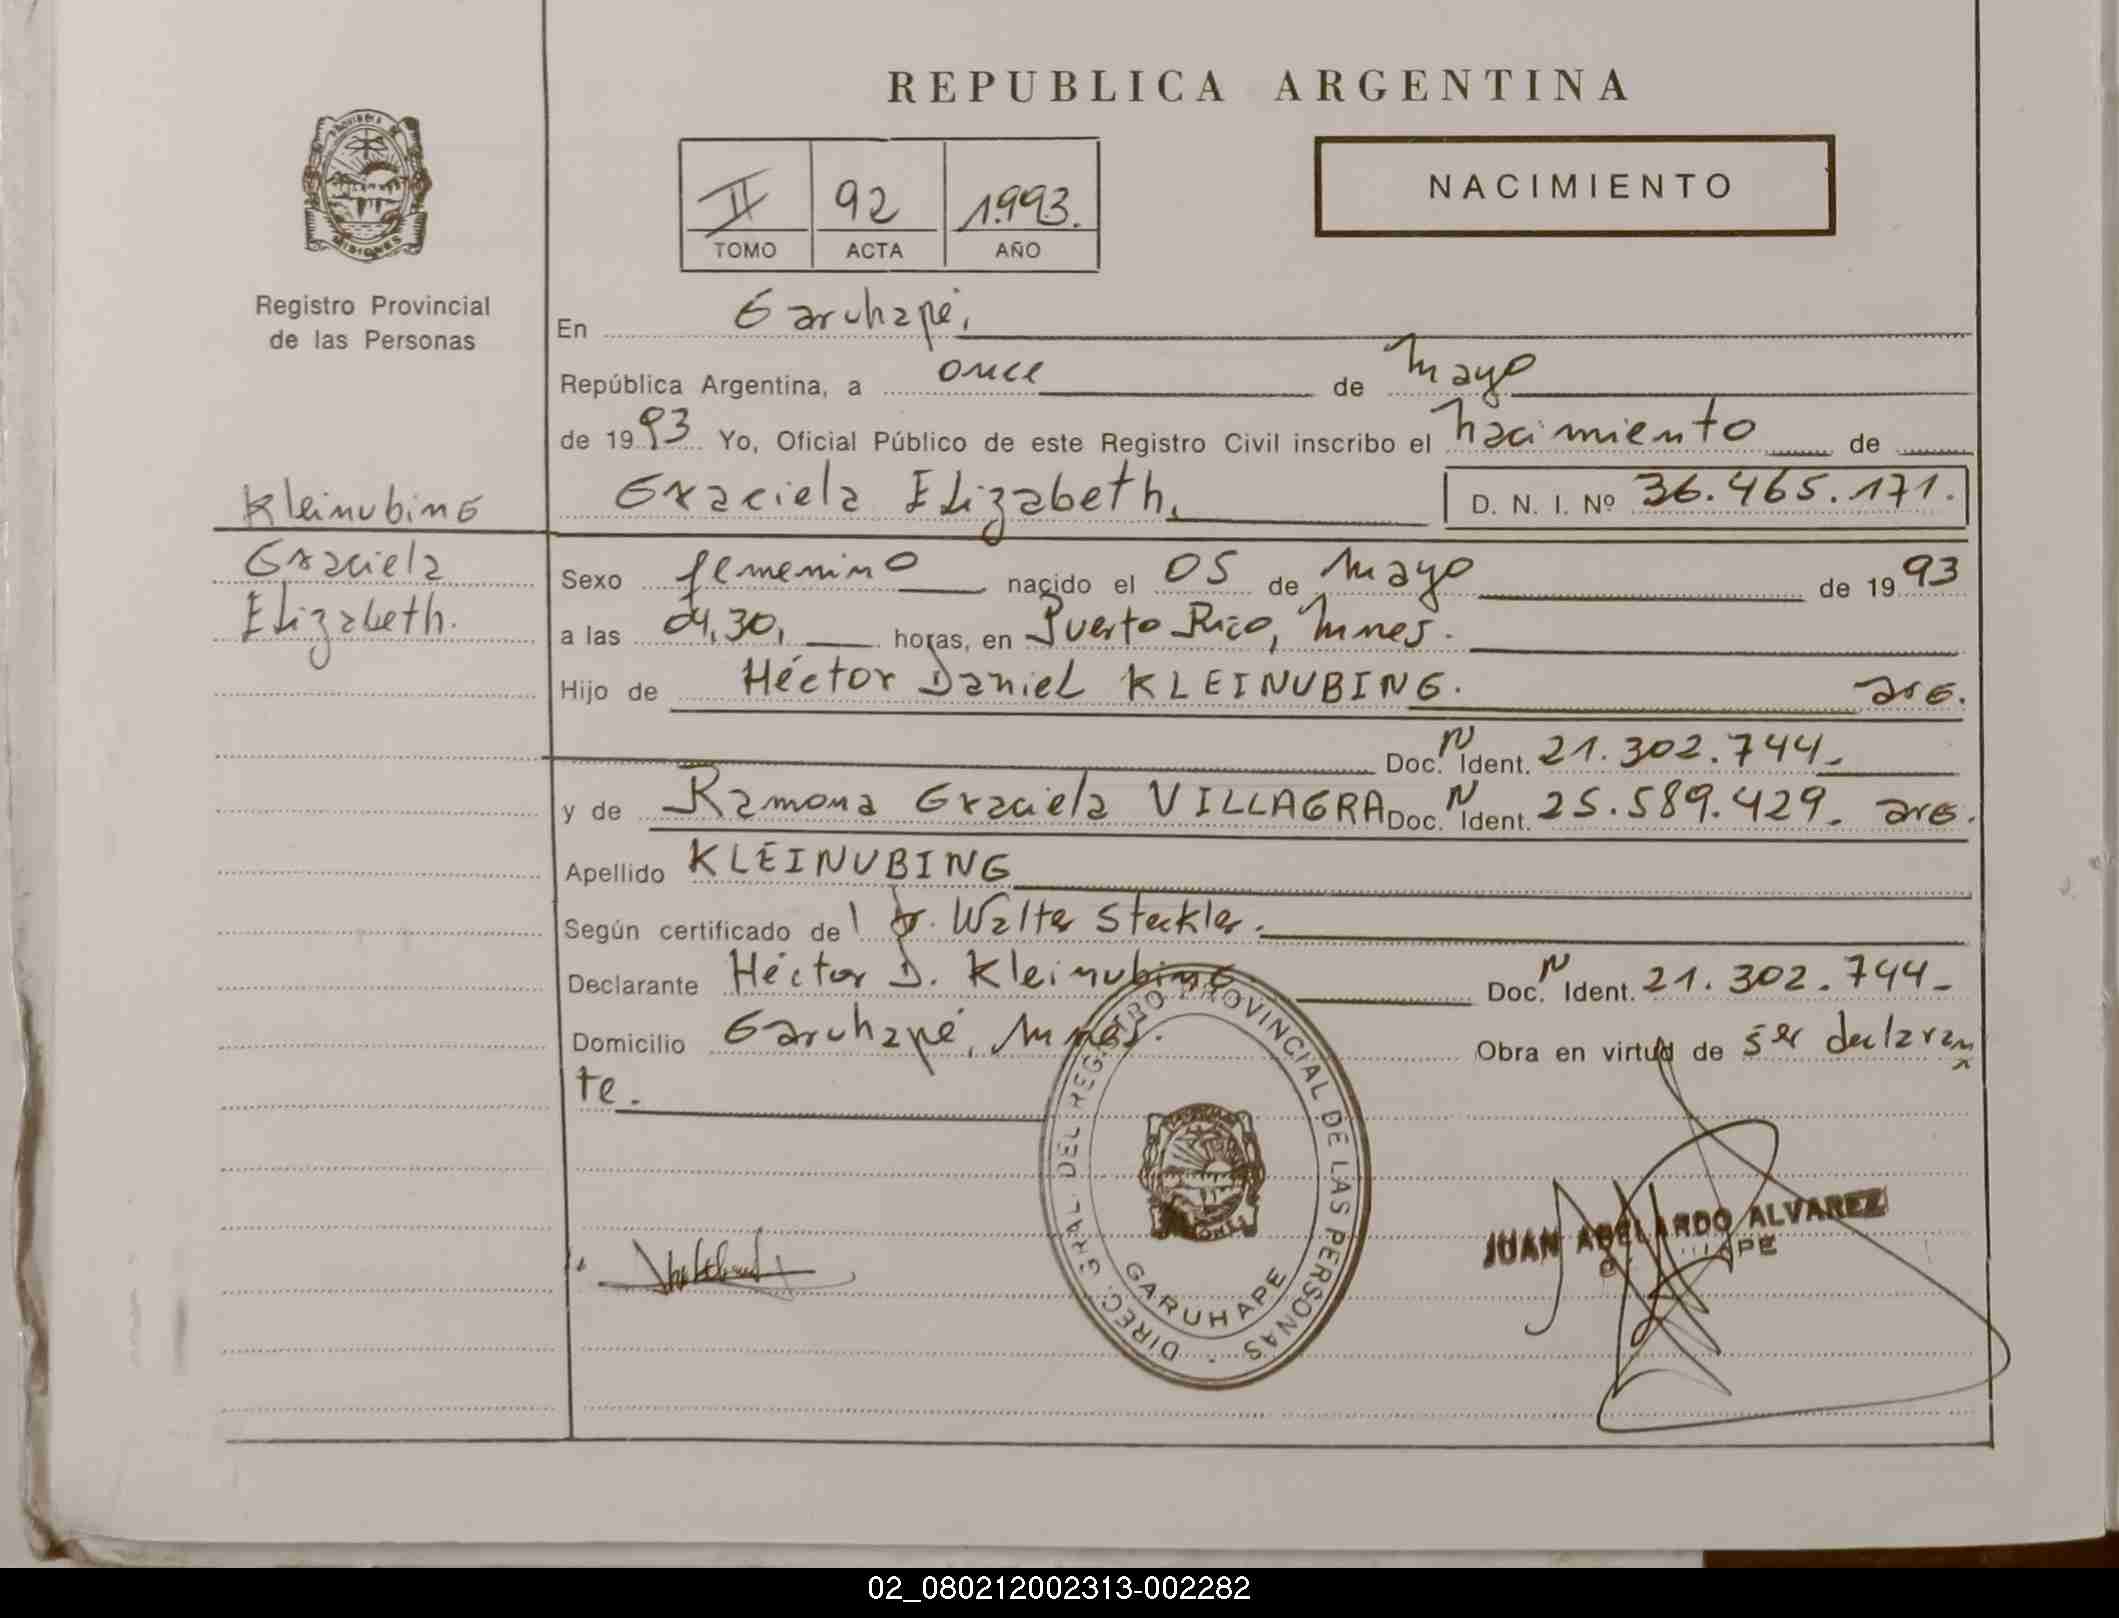 REPUBLICA ARGENTINA
PROVINCIA DE
MISIONES
Registro Provincial
de las Personas
II 92 1.993.
TOMO ACTA AÑO
NACIMIENTO
En Garuhapé,
República Argentina, a once de mayo
de 1993 Yo, Oficial Público de este Registro Civil inscribo el nacimiento de
Kleinubing
Graciela
Elizabeth.
Graciela Elizabeth, D. N. I. Nº 36.465.171.
Sexo femenino nacido el 05 de mayo de 1993
a las 04,30, horas, en Puerto Rico, Mnes.
Hijo de Héctor Daniel KLEINUBING. arg.
Doc. N Ident. 21.302.744-
y de Ramona Graciela VILLAGRA Doc. N Ident. 25.589.429- arg.
Apellido KLEINUBING
Según certificado de l Dr. Walter Steckler.
Declarante Héctor D. Kleinubing Doc. N Ident. 21.302.744-
Domicilio Garuhapé, Mnes. Obra en virtud de ser declaran
te.
DIREC. GRAL. DEL REGISTRO PROVINCIAL DE LAS PERSONAS
GARUHAPE
JUAN ABELARDO ALVAREZ
02_080212002313-002282